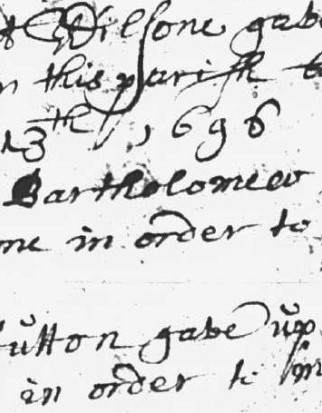 Wilsone gabe
this parish
13th, 1696
Bartholomew
me in order to
utton gabe up
in order to